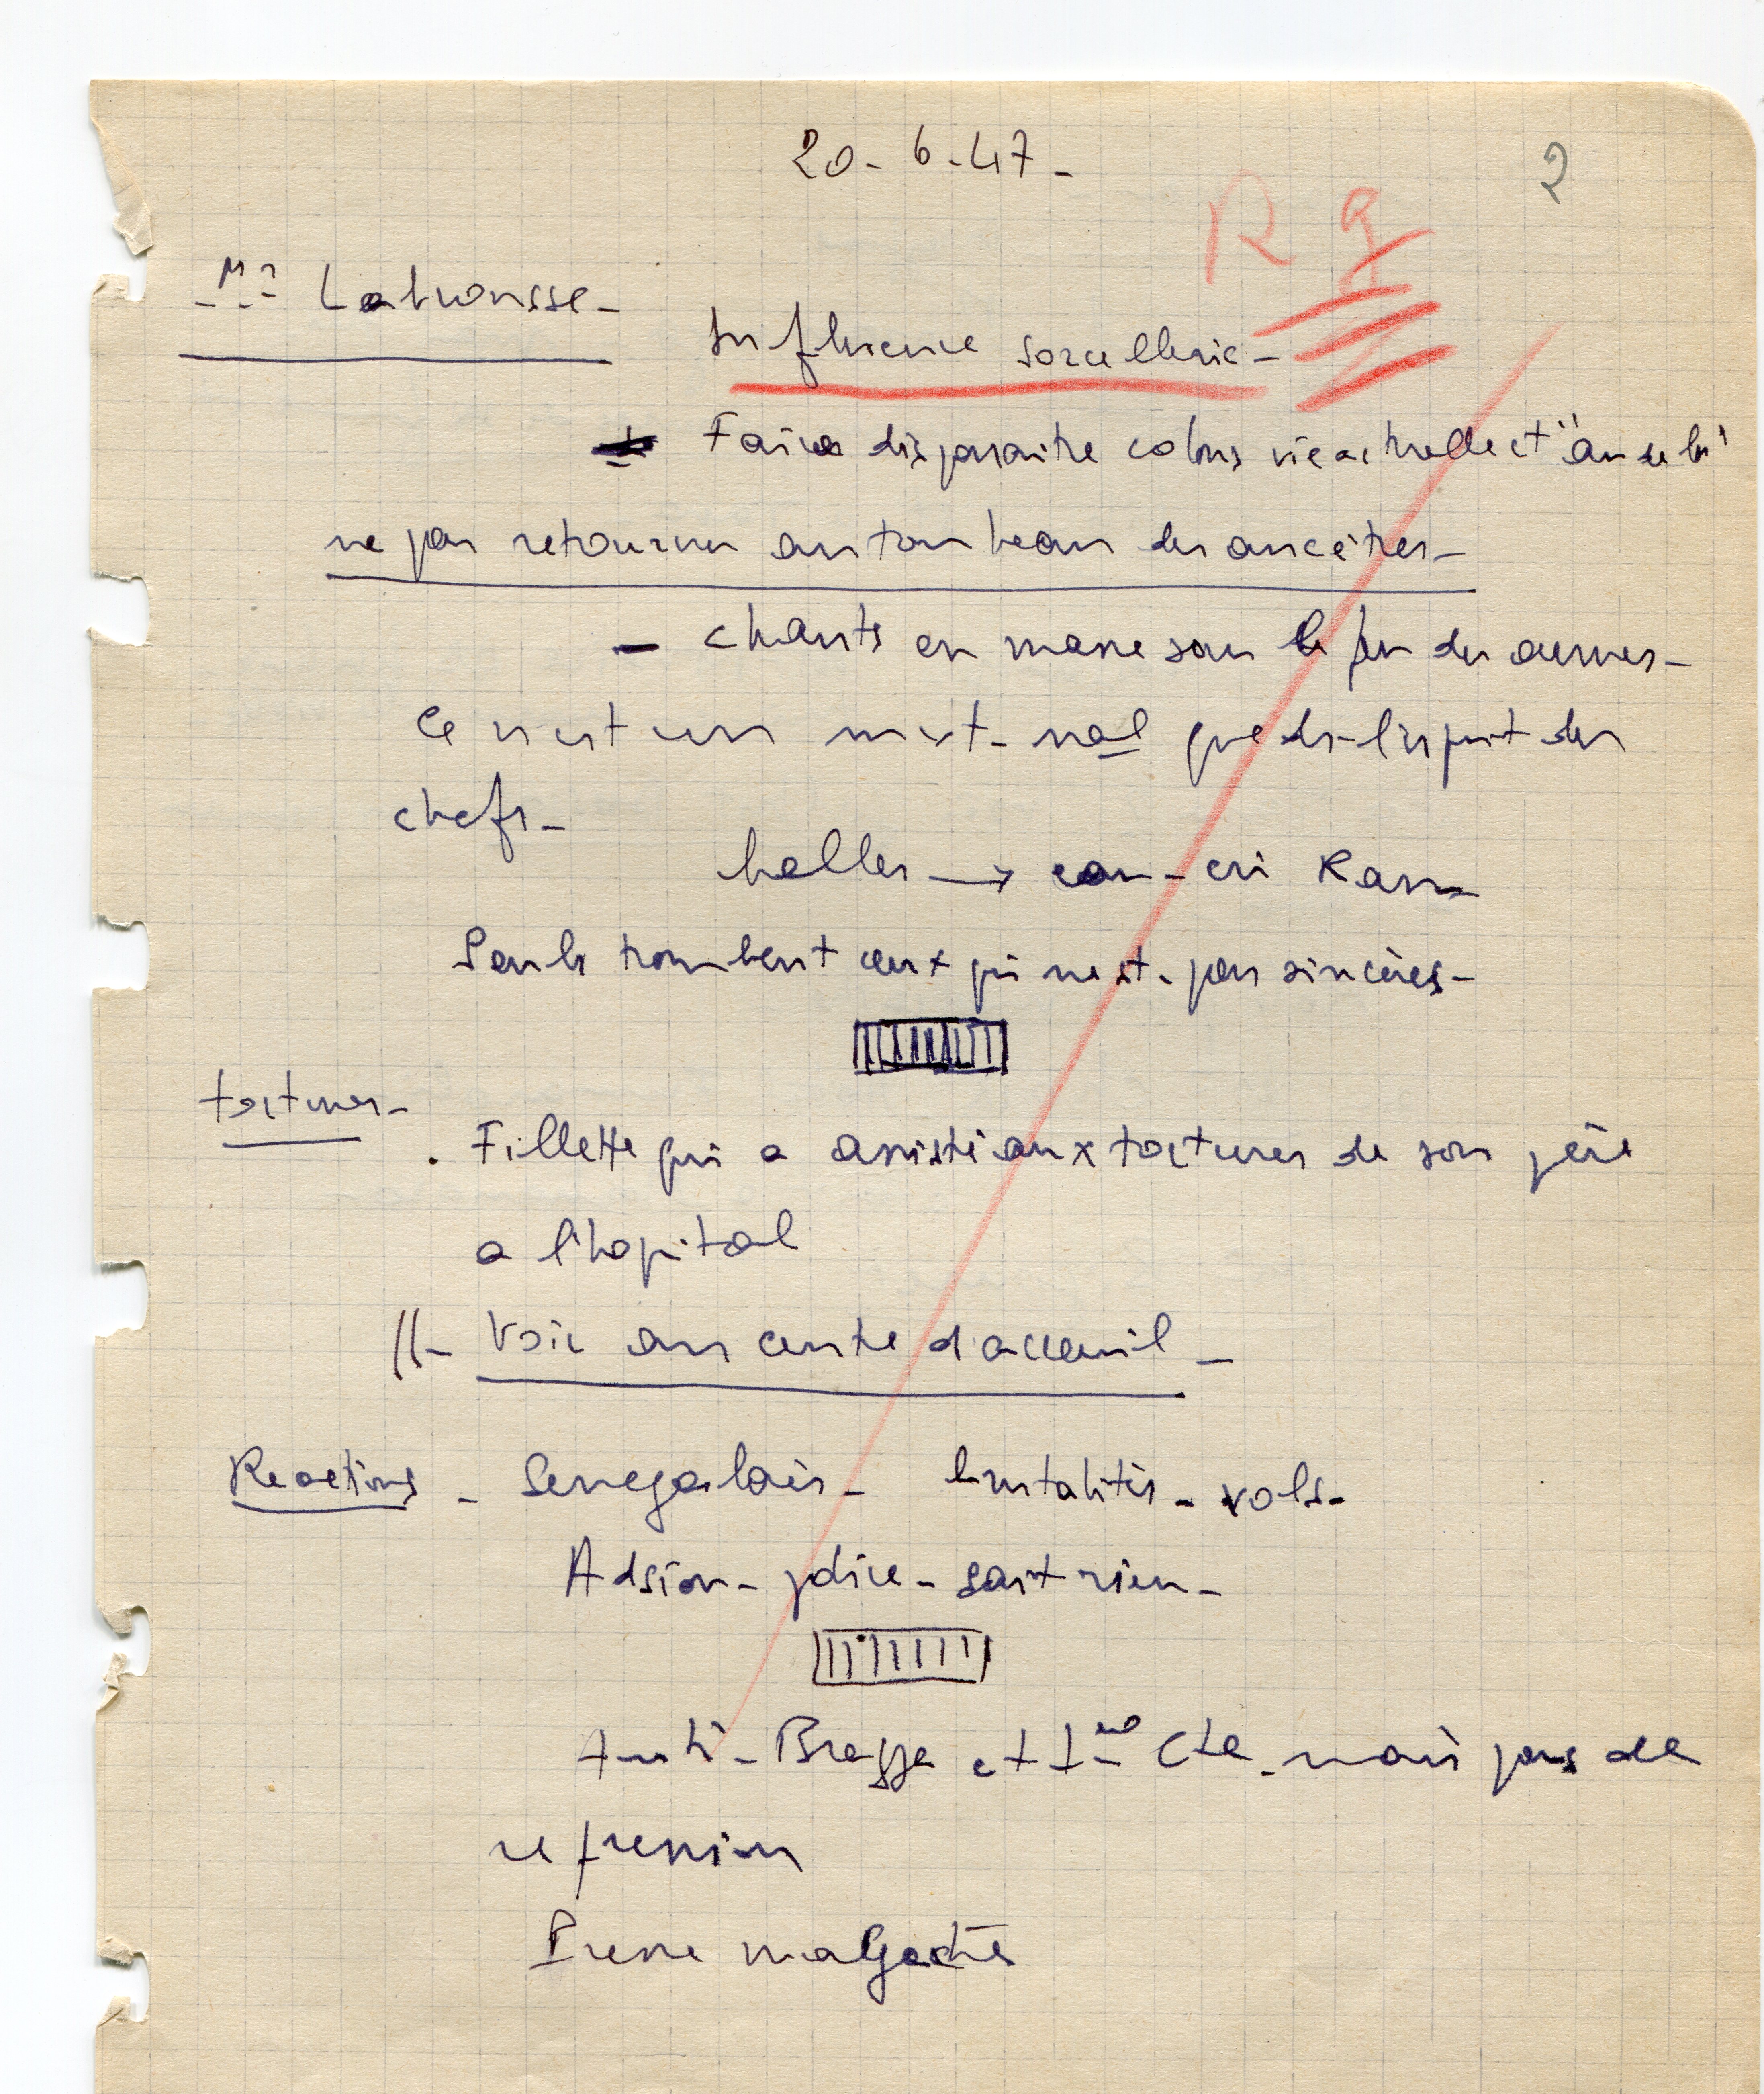 20-6-47-
2
R
Mr Latrousse-
Influence sorcellerie-
Faire disparaitre colons vie actuelle et "au delà"
ne pas retourner au tombeau des ancêtres-
- chants en masse sous le feu des armes-
Ce n'est un mvt. nal que ds. l'esprit des
chefs-
balles → eau - cri Rano
Seuls tombent ceux qui ne st. pas sincères-
tortures-
. Fillette qui a assisté aux tortures de son père
a l'hopital
//- Voir au centre d'acceuil-
Reactions - Senegalais- brutalités- vols-
Adsion- police- sait rien-
Anti-Bragge et Cte- mais pas de
repression
Presse malgache